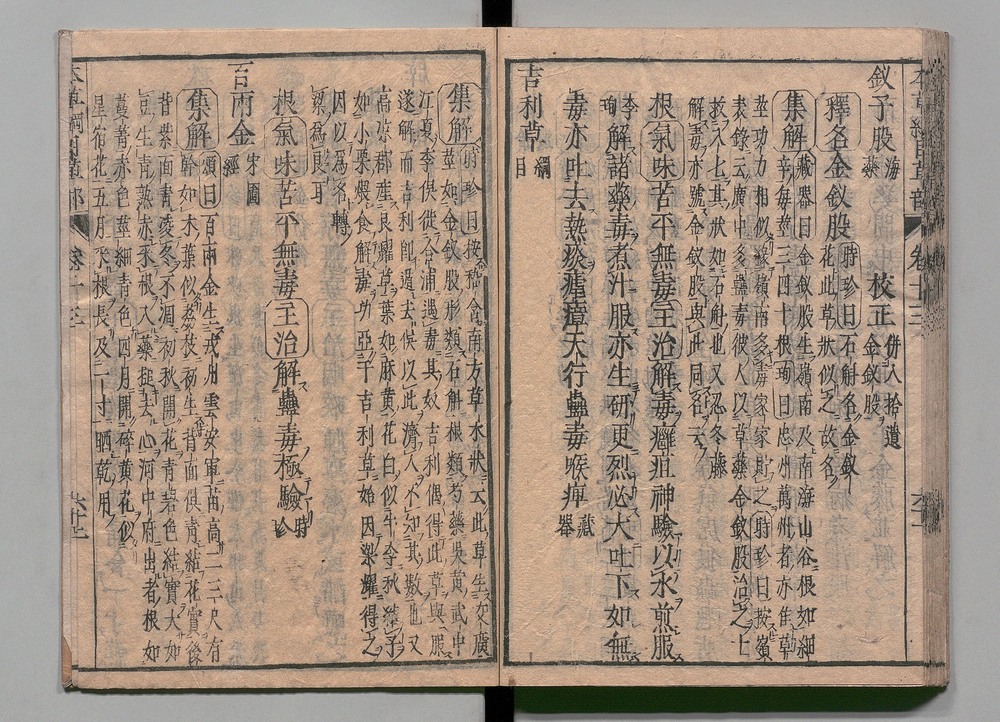 釵子股 海藥 校正 併入拾遺金釵股
釋名金釵股 時珍曰石斛名金釵
花此草狀似之故名
集解 藏器曰金釵股生嶺南及南海山谷根如細
辛每莖三四十根珣曰忠州萬州者亦佳草
莖功力相似緣嶺南多毒家家貯之時珍曰按嶺
表錄云廣中多蠱毒彼人以草藥金釵股治之十
救八九其狀如石斛也又忍冬藤
解毒亦號金釵股與此同名云
根氣味苦平無毒主治解毒癰疽神驗以水煎服
李珣 解諸藥毒煮汁服亦生研更烈必大吐下如無
毒亦吐去熱痰瘧瘴天行蠱毒喉痺 藏器
吉利草 綱目
集解 時珍曰按嵇含南方草木狀云此草生交廣
莖如金釵股形類石斛根類芍藥吳黃武中
江夏李俁徙合浦遇毒其奴吉利偶得此草與服
遂解而吉利即遁去俁以此濟人不知其數也又
高涼郡產良耀草葉如麻黃花白似牛李秋結子
如小粟煨食解毒功亞于吉利草始因梁耀得之
因以為名轉
梁為良耳
根氣味苦平無毒主治解蠱毒極驗 時珍
百兩金 宋圖經
集解 頌曰百兩金生戎州雲安軍苗高二三尺有
幹如木葉似荔枝初生背面俱青結花實後
背紫面青凌冬不凋初秋開花青碧色結實大如
豆生青熟赤采根入藥搥去心河中府出者根如
蔓菁赤色莖細青色四月開碎黃花似
星宿花五月采根長及一寸晒乾用